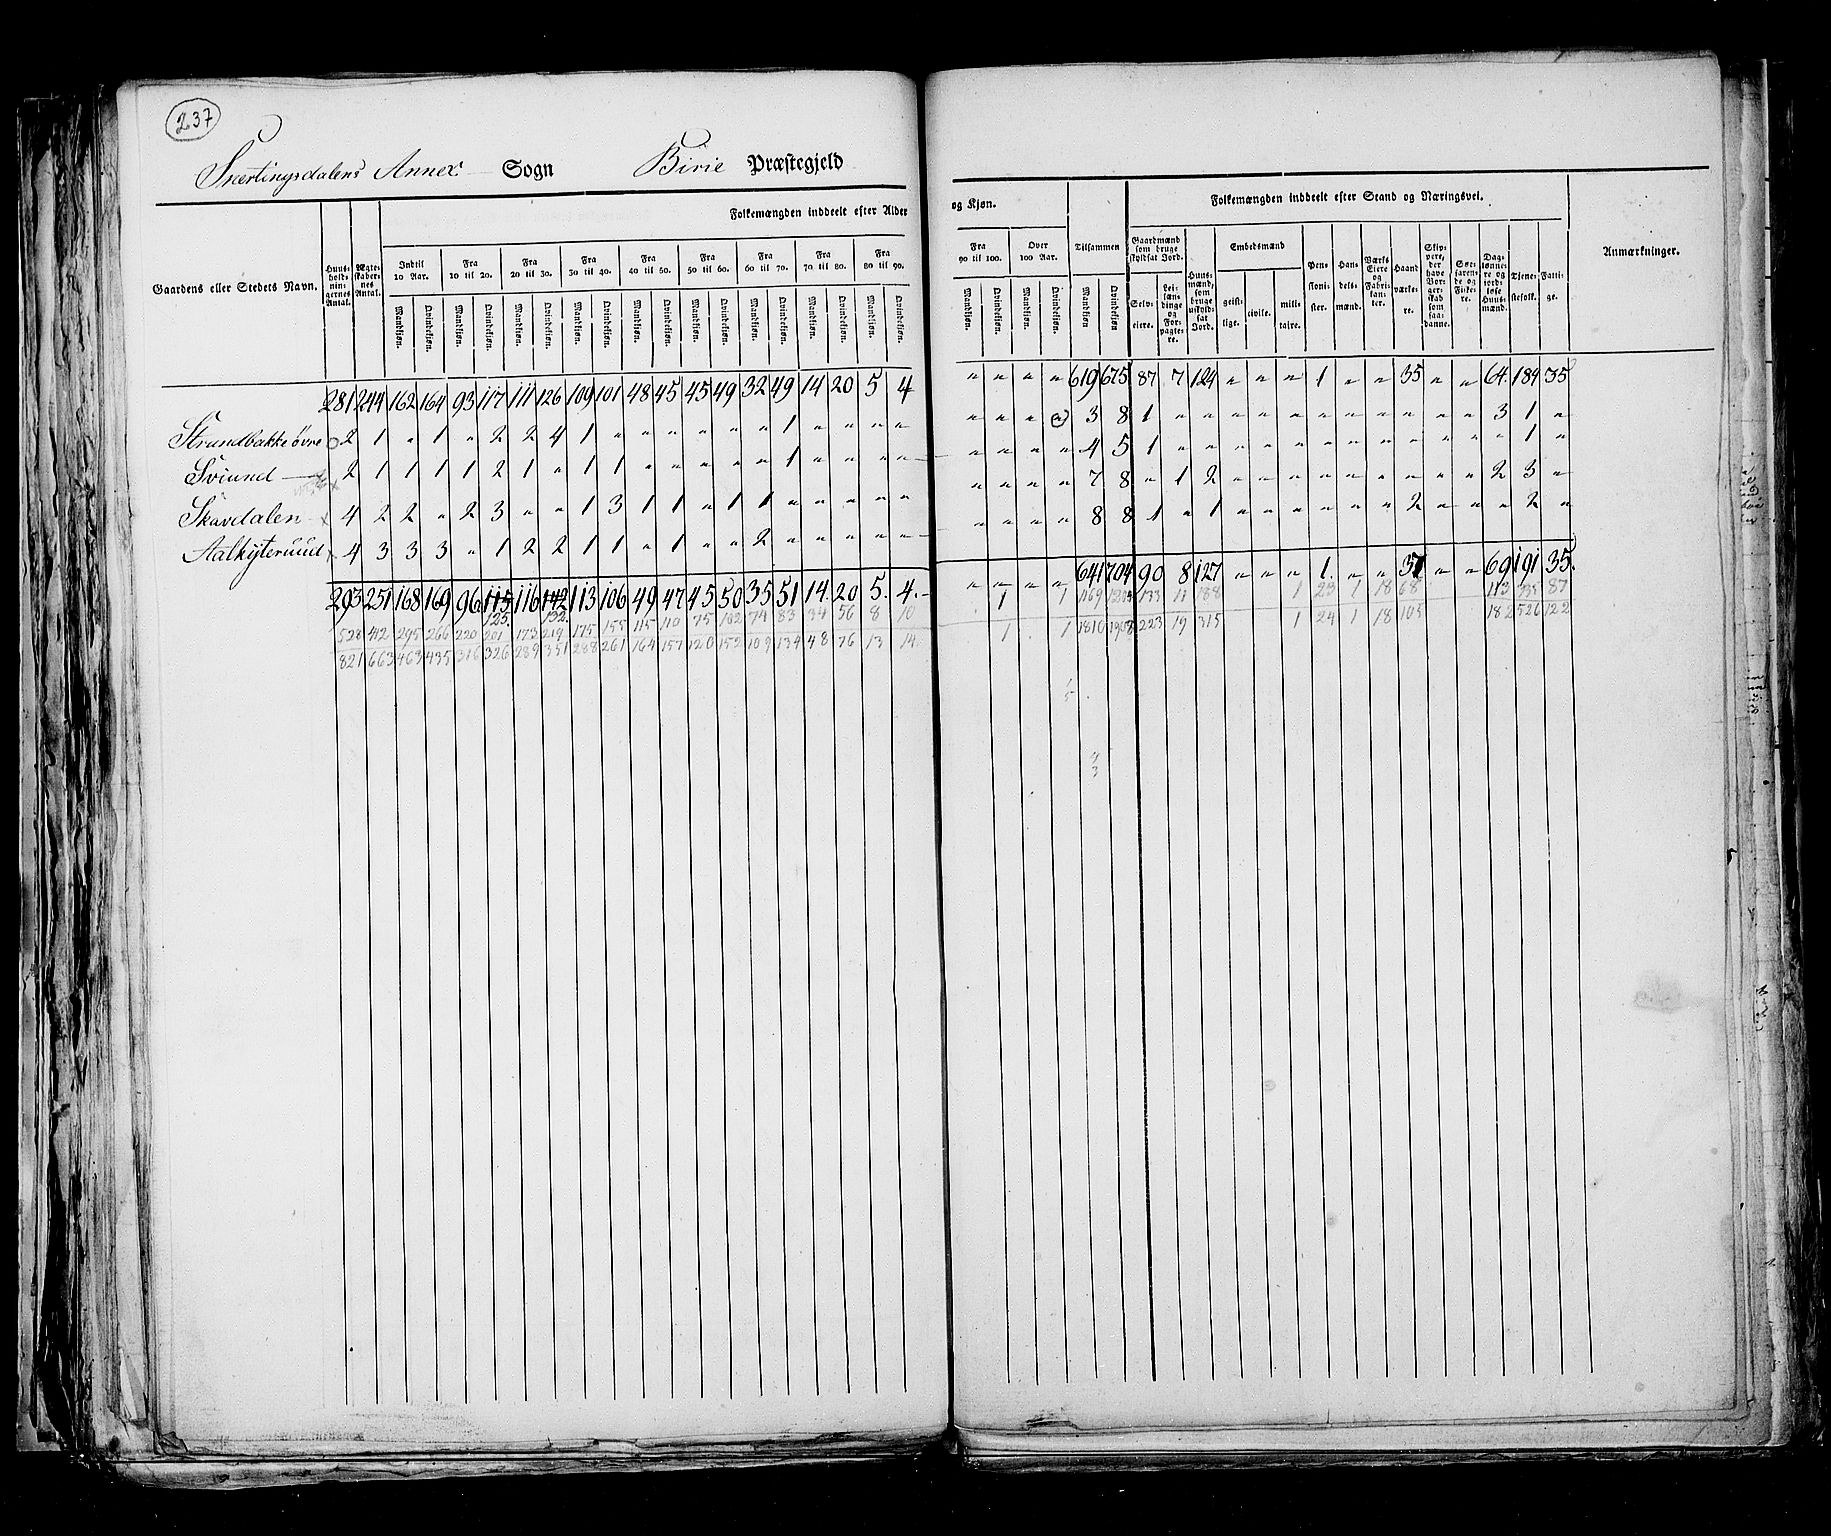 237
Snertingsdalens Annex Sogn Birie Præstegjeld
Gaardens eller Stedets Navn.
Huus-holdningernes Antal.
Ægteskabernes Antal.
Folkemængden inddeelt efter Alder og Kjøn.
Indtil 10 Aar. Fra 10 til 20. Fra 20 til 30. Fra 30 til 40. Fra 40 til 50. Fra 50 til 60. Fra 60 til 70. Fra 70 til 80. Fra 80 til 90. Fra 90 til 100. Over 100 Aar. Tilsammen
Mandkjøn. Qvindekjøn. Mandkjøn. Qvindekjøn. Mandkjøn. Qvindekjøn. Mandkjøn. Qvindekjøn. Mandkjøn. Qvindekjøn. Mandkjøn. Qvindekjøn. Mandkjøn. Qvindekjøn. Mandkjøn. Qvindekjøn. Mandkjøn. Qvindekjøn. Mandkjøn. Qvindekjøn. Mandkjøn. Qvindekjøn. Mandkjøn Qvindekjøn
Folkemængden inddeelt efter Stand og Næringsvei.
Gaardmænd som bruge skyldsat Jord.
Selveiere.
Leilændinge og Forpagtere.
Huusmænd, som bruge uskyldsat Jord.
Embedsmænd
geistlige. civile. militaire.
Pensionister.
Handelsmænd.
Værks Eiere og Fabrikanter.
Haandværkere.
Skippere, der have Borgerskab som saadanne.
Søefarende og Fiskere.
Daglønnere og jordløse Huusmænd.
Tjenestefolk.
Fattige.
Anmærkninger.
281 244 162 164 93 117 111 126 109 101 48 45 45 49 32 49 14 20 5 4 " " " " 619 675 87 7 124 " " " 1 " " 35 " " 64 184 35
Strandbakke øvre 2 1 " 1 " 2 2 4 1 " " " " " " 1 " " " " " " " " 3 8 1 " " " " " " " " " " " 3 1 "
Sviund 2 1 1 1 1 2 1 " 1 1 " " " " " 1 " " " " " " " " 4 5 1 " " " " " " " " " " " " 1 "
Skavdalen 4 2 2 " 2 3 " " 1 3 1 1 " 1 1 " " " " " " " " " 7 8 " 1 2 " " " " " " " " " 2 3 "
Aalkysteruud 4 3 3 3 " 1 2 2 1 1 " 1 " " 2 " " " " " " " " " 8 8 1 " 1 " " " " " " 2 " " " 2 "
293 251 168 169 96 115 116 142 113 106 49 47 45 50 35 51 14. 20 5. 4. " " " " 641 704 90 8 127 " " " 1. " " 37 " " 69 191 35.
125. 132.
528 412 295 266 220 201 173 219 175 155 115 110 75 102 74 83 34 56 8 10 1 1 1169 1204 133 11 188 1 23 1 18 68 113 335 87
821 663 463 435 316 326 289 351 288 261 164 157 120 152 109 134 48 76 13 14. 1 1 1810 1908 223 19 315 1 24 1 18 105 182 526 122